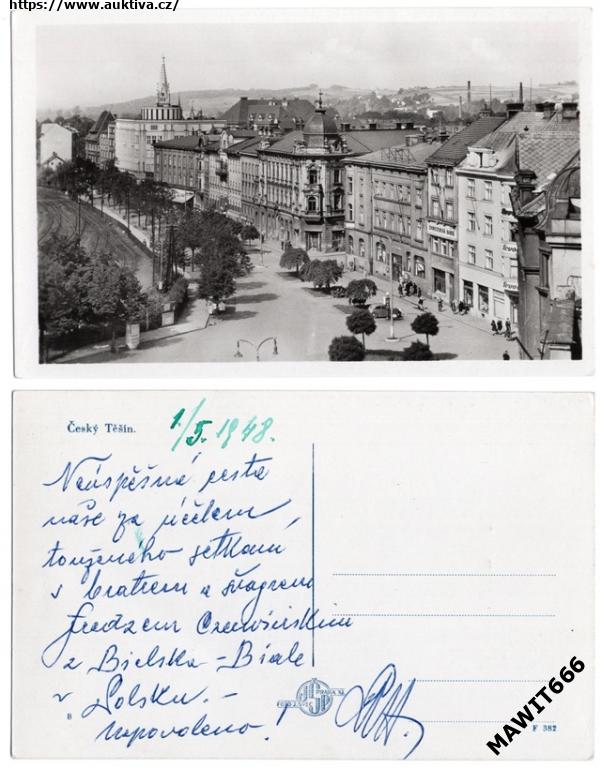 https://www.auktiva.cz/
Český Těšín.
1/5. 1948.
Neúspěšná cesta
naše za účelem
touženého setkání
s bratrem a švagrem
z Bielska-Biale
v Polsku. -
nepovoleno.
8
F 382
MAWIT666